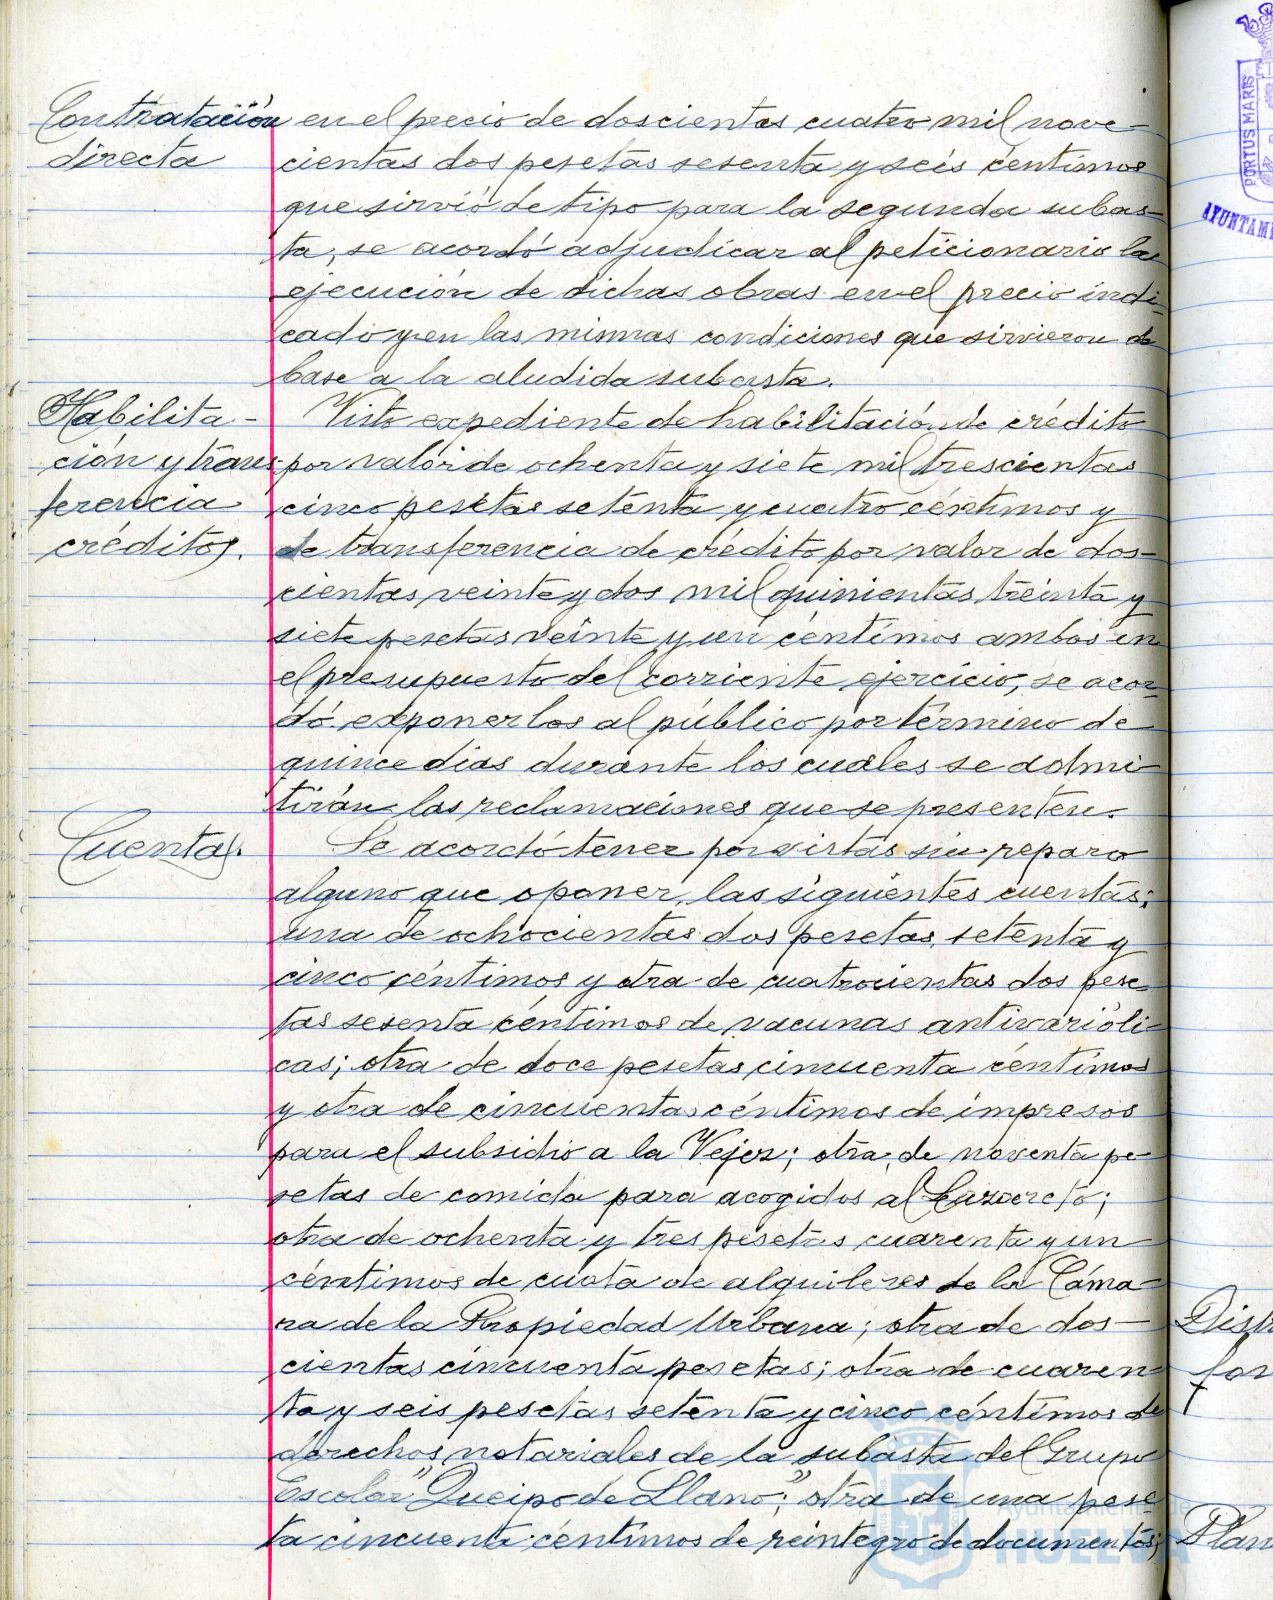 Contratación
directa
en el precio de doscientas cuatro mil nove-
cientas dos pesetas sesenta y seis céntimos
que sirvió de tipo para la segunda subas-
ta, se acordó adjudicar al peticionario la
ejecución de dichas obras en el precio indi-
cado y en las mismas condiciones que sirvieron de
base a la aludida subasta.
Habilita-
ción y trans-
ferencia
créditos.
Visto expediente de habilitación de crédito
por valor de ochenta y siete mil trescientas
cinco pesetas setenta y cuatro céntimos y
de transferencia de crédito por valor de dos-
cientas veinte y dos mil quinientas treinta y
siete pesetas veinte y un céntimos ambos en
el presupuesto del corriente ejercicio, se acor-
dó exponerlos al público por término de
quince dias durante los cuales se admi-
tirán las reclamaciones que se presenten.
Cuentas.
Se acordó tener por vistas sin reparo
alguno que oponer, las siguientes cuentas:
una de ochocientas dos pesetas, setenta y
cinco céntimos y otra de cuatrocientas dos pese-
tas sesenta céntimos de vacunas antivarióli-
cas; otra de doce pesetas cincuenta céntimos
y otra de cincuenta céntimos de impresos
para el subsidio a la Vejez; otra, de noventa pe-
setas de comida para acogidos al Lazareto;
otra de ochenta y tres pesetas cuarenta y un
céntimos de cuota de alquileres de la Cáma-
ra de la Propiedad Urbana; otra de dos-
cientas cincuenta pesetas; otra de cuaren-
ta y seis pesetas setenta y cinco céntimos de
derechos notariales de la subasta del Grupo
Escolar "Queipo de Llano"; otra de una pese-
ta cincuenta céntimos de reintegro de documentos;
PORTUS MARIS
AYUNTAM
Dist
for
Plan
Ayuntamiento de
HUELVA